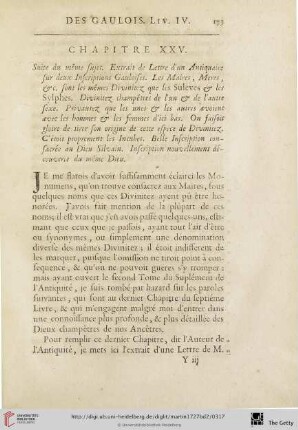 DES GAULOIS. LIV. IV. 155
CHAPITRE XXV.
Suite du même sujet. Extrait de Lettre d'un Antiquaire
sur deux Inscriptions Gauloises. Les Maires, Meres,
&c. sont les mêmes Divinitez que les Suleves & les
Sylphes. Divinitez champêtres de l'un & de l'autre
sexe. Prouvantez que les unes & les autres avoient
avec les hommes & les femmes d'ici bas. On faisoit
gloire de tirer son origine de cette espece de Divinitez.
C'étoit proprement les Incubes. Belle Inscription con-
sacrée au Dieu Silvain. Inscription nouvellement dé-
couverte du même Dieu.
JE me flatois d'avoir suffisamment éclairci les Mo-
numens, qu'on trouve consacrez aux Maires, sous
quelques noms que ces Divinitez ayent pû être ho-
norées. J'avois fait mention de la plûpart de ces
noms; il est vrai que j'en avois passé quelques-uns, esti-
mant que ceux que je passois, ayant tout l'air d'être
ou synonymes, ou simplement une dénomination
diverse des mêmes Divinitez; il étoit indifferent de
les marquer, puisque l'omission ne tiroit point à con-
sequence, & qu'on ne pouvoit guéres s'y tromper:
mais ayant ouvert le second Tome du Suplément de
l'Antiquité, je suis tombé par hazard sur les paroles
suivantes, qui sont au dernier Chapitre du septiéme
Livre, & qui m'engagent malgré moi d'entrer dans
une connoissance plus profonde, & plus détaillée des
Dieux champêtres de nos Ancêtres.
Pour remplir ce dernier Chapitre, dit l'Auteur de
l'Antiquité, je mets ici l'extrait d'une Lettre de M. ..
Y iij
http://digi.ub.uni-heidelberg.de/diglit/martin1727bd2/0317
© Universitätsbibliothek Heidelberg
The Getty